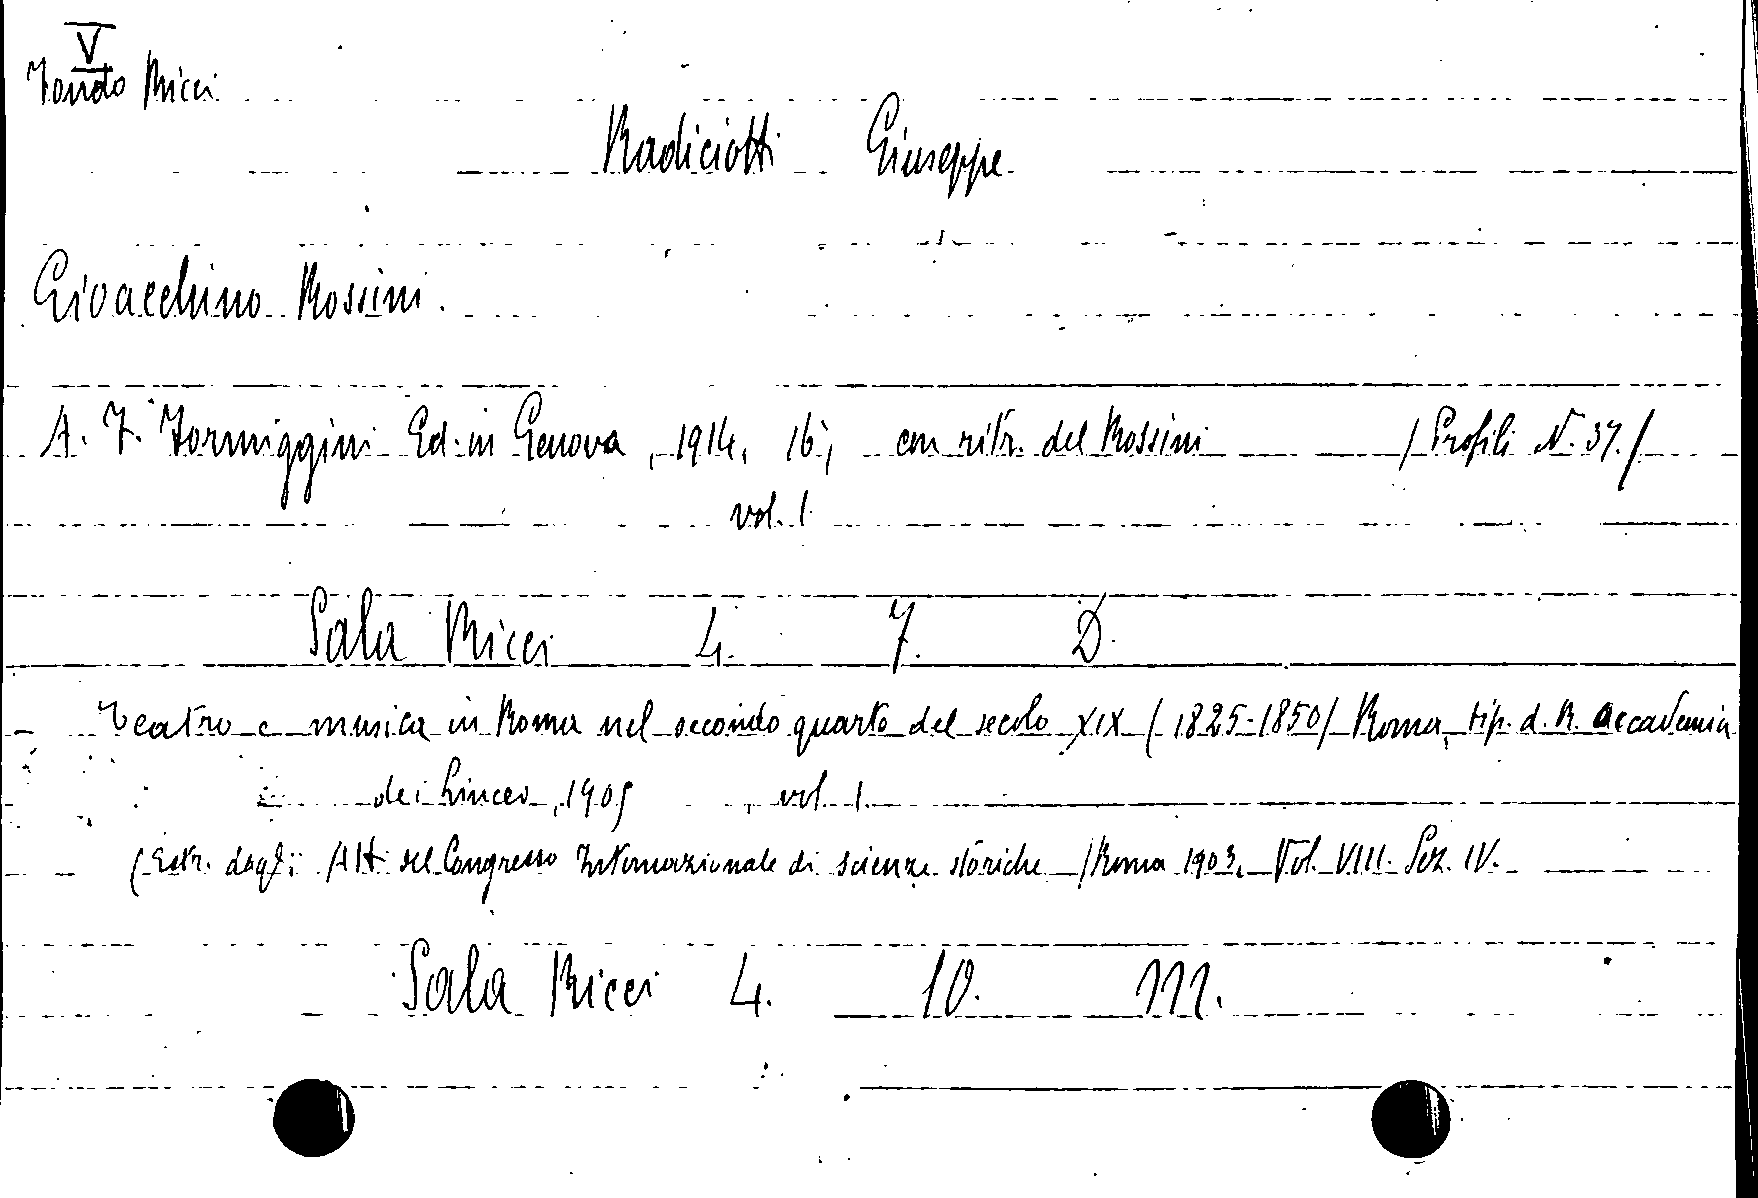 V
Fondo Ricci
Radiciotti Giuseppe
Gioacchino Rossini.
A. F. Formiggini Ed. in Genova, 1914, 16°, con ritr. del Rossini / Profili N. 37. /
vol. 1
Sala Ricci 4. 7. D.
- Teatro e musica in Roma nel secondo quarto del secolo XIX (1825-1850/ Roma, tip. d. R. Accademia
dei Lincei, 1905, vol. 1.
(Estr. dagli Atti del Congresso Internazionale di scienze storiche /Roma 1903. Vol. VIII. Sez. IV.
Sala Ricci 4. 10. M.